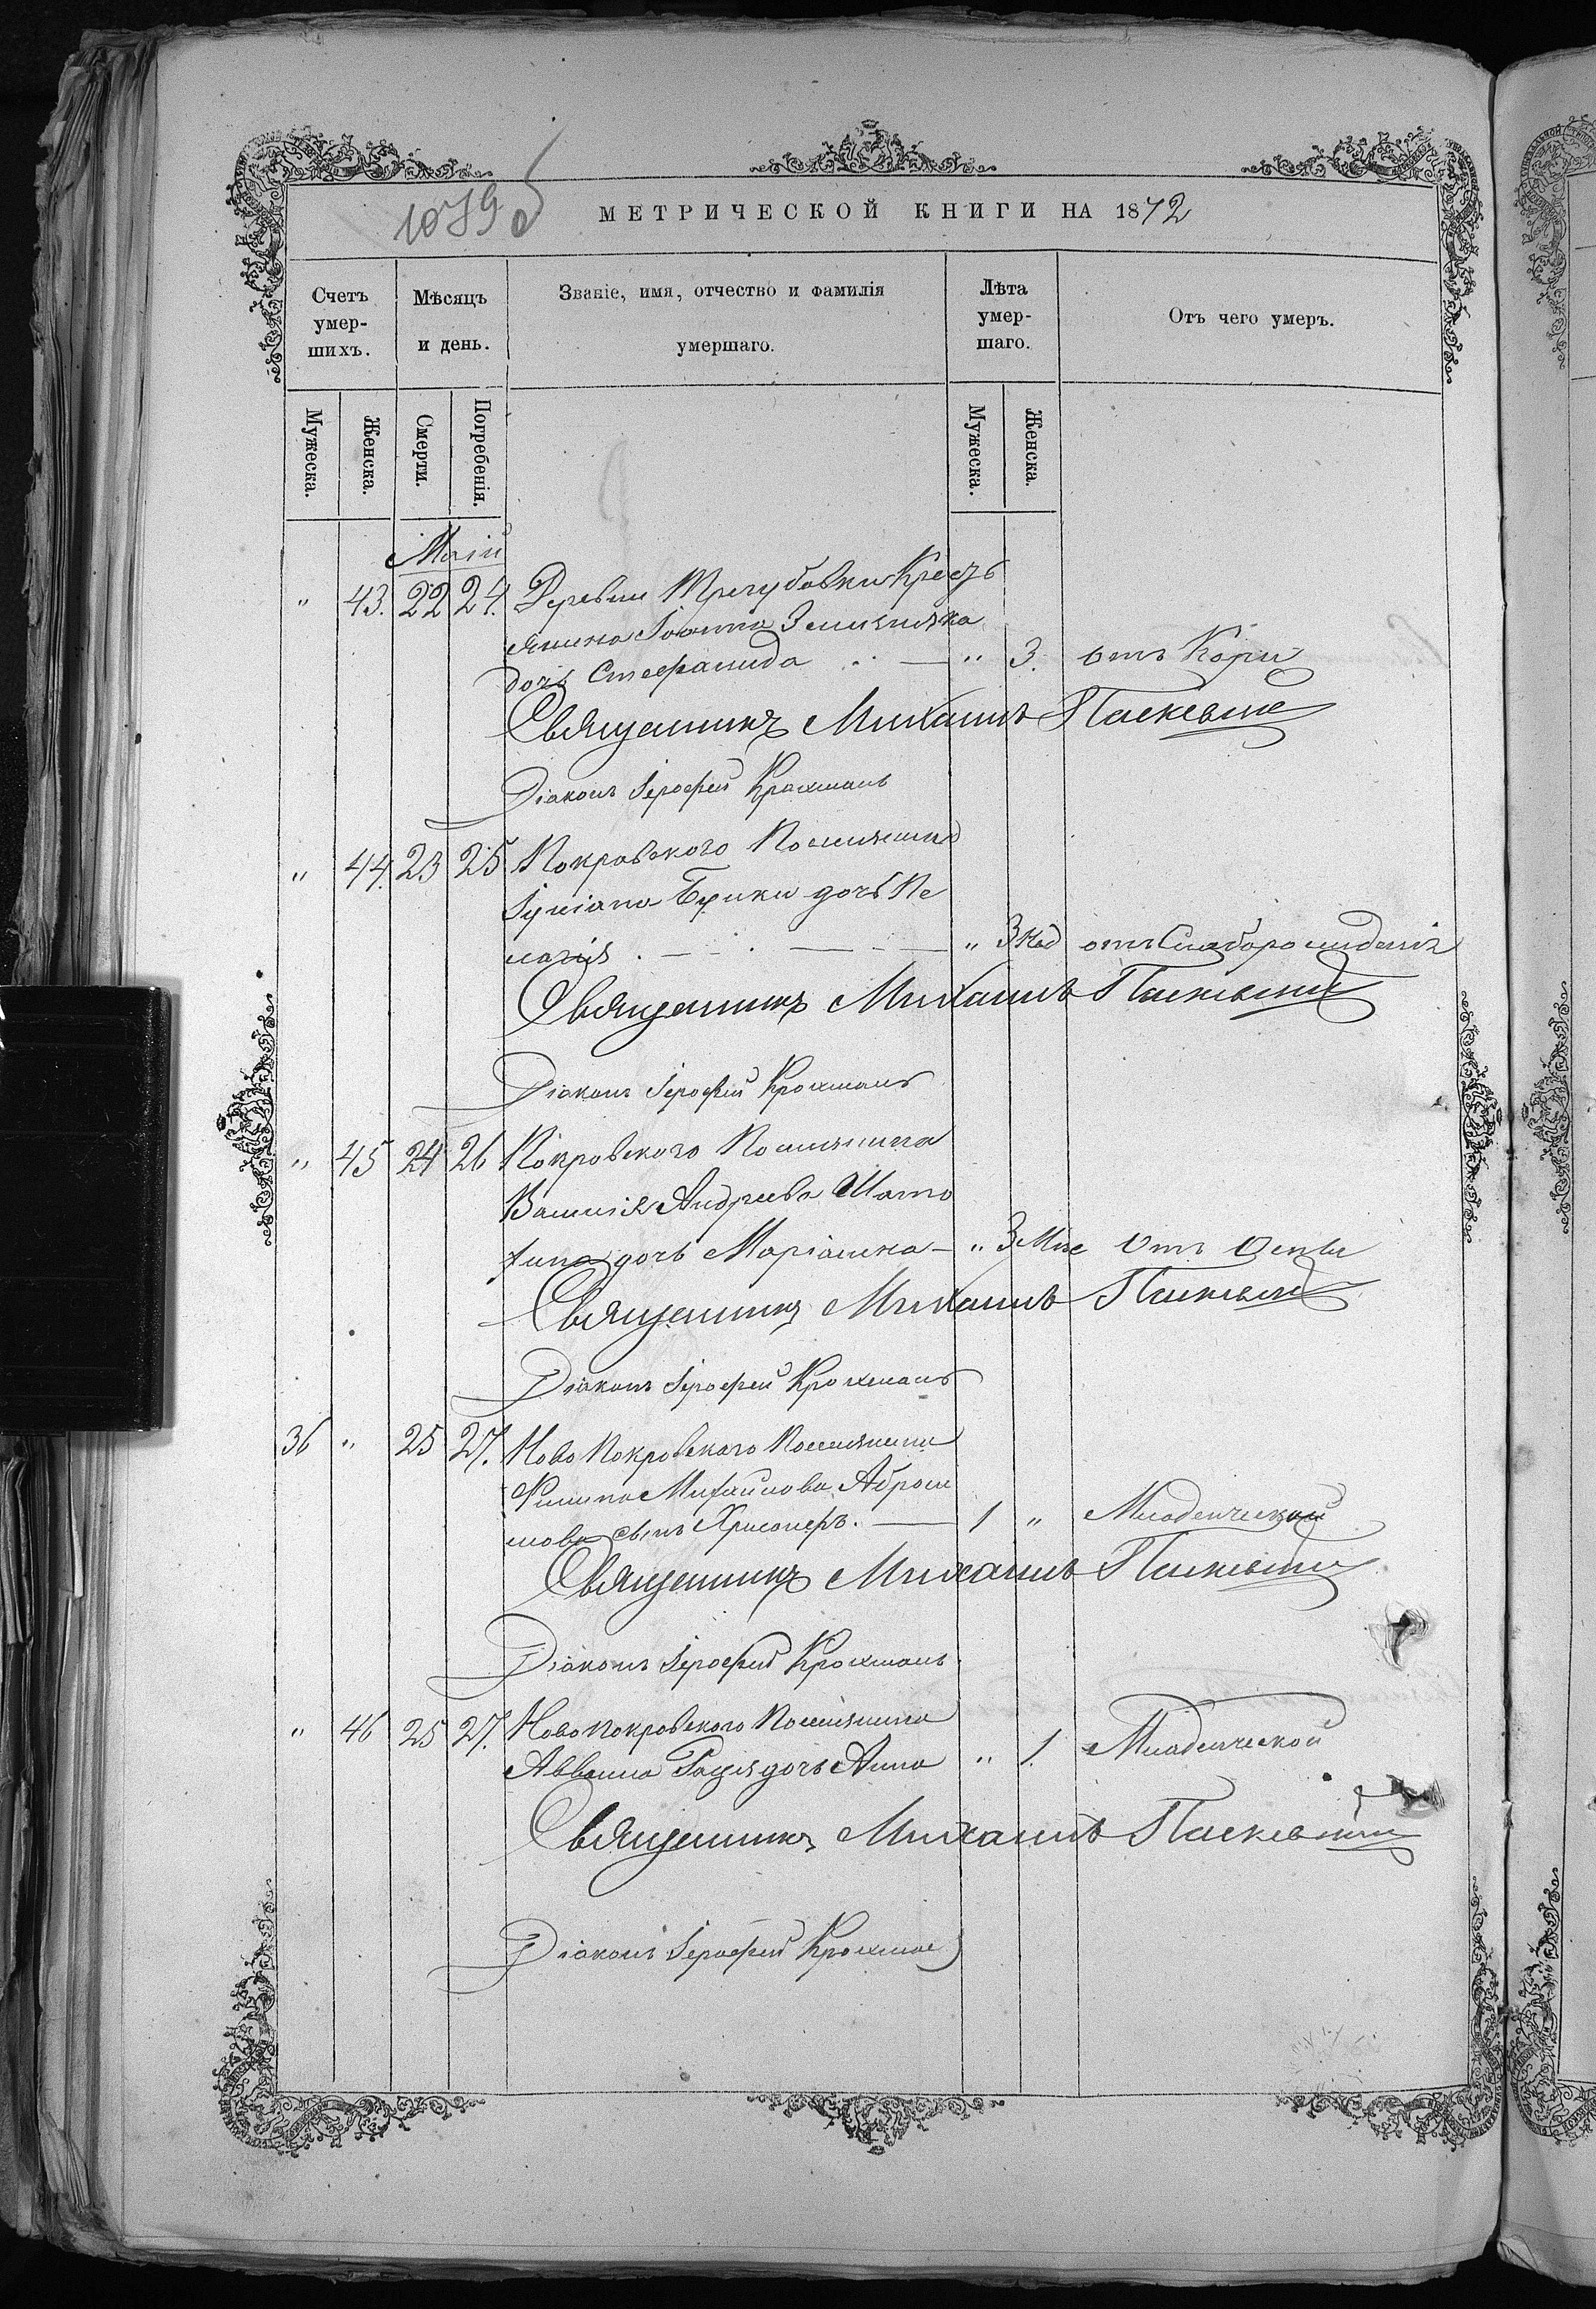 1079 об
МЕТРИЧЕСКОЙ КНИГИ НА 1872
Счетъ умер-шихъ.
Мѣсяцъ и день.
Званіе, имя, отчество и фамилія умершаго.
Лѣта умер-шаго.
Отъ чего умеръ.
Мужеска.
Женска.
Смерти.
Погребенія.
Мужеска.
Женска.
Маій
" 43. 22 24. Деревни Трегубовки Кресть
янина Іоанна
дочь Стефанида " 3. отъ Кори
Священникъ Михаилъ
Діаконъ Іерофей Крохмаль
" 44. 23 25 Покровского Поселянина
дочь Пе
лагія " 3 Нед отъ
Священникъ Михаилъ
Діаконъ Іерофей Крохмаль
" 45 24 26 Покровского Поселянина
Василія Андреева
дочь Маріамна " 3 Мѣс Отъ Оспы
Священникъ Михаилъ
Діаконъ Іерофей Крохмаль
36 " 25 27. Ново Покровского Поселянина
Филипа Михайлова Аброси
мова сынъ 1 " Младенческой
Священникъ Михаилъ
Діаконъ Іерофей Крохмаль
" 46 25 27. Новопокровского Поселянина
дочь Анна " 1. Младенческой
Священникъ Михаилъ
Діаконъ Іерофей Крохмаль